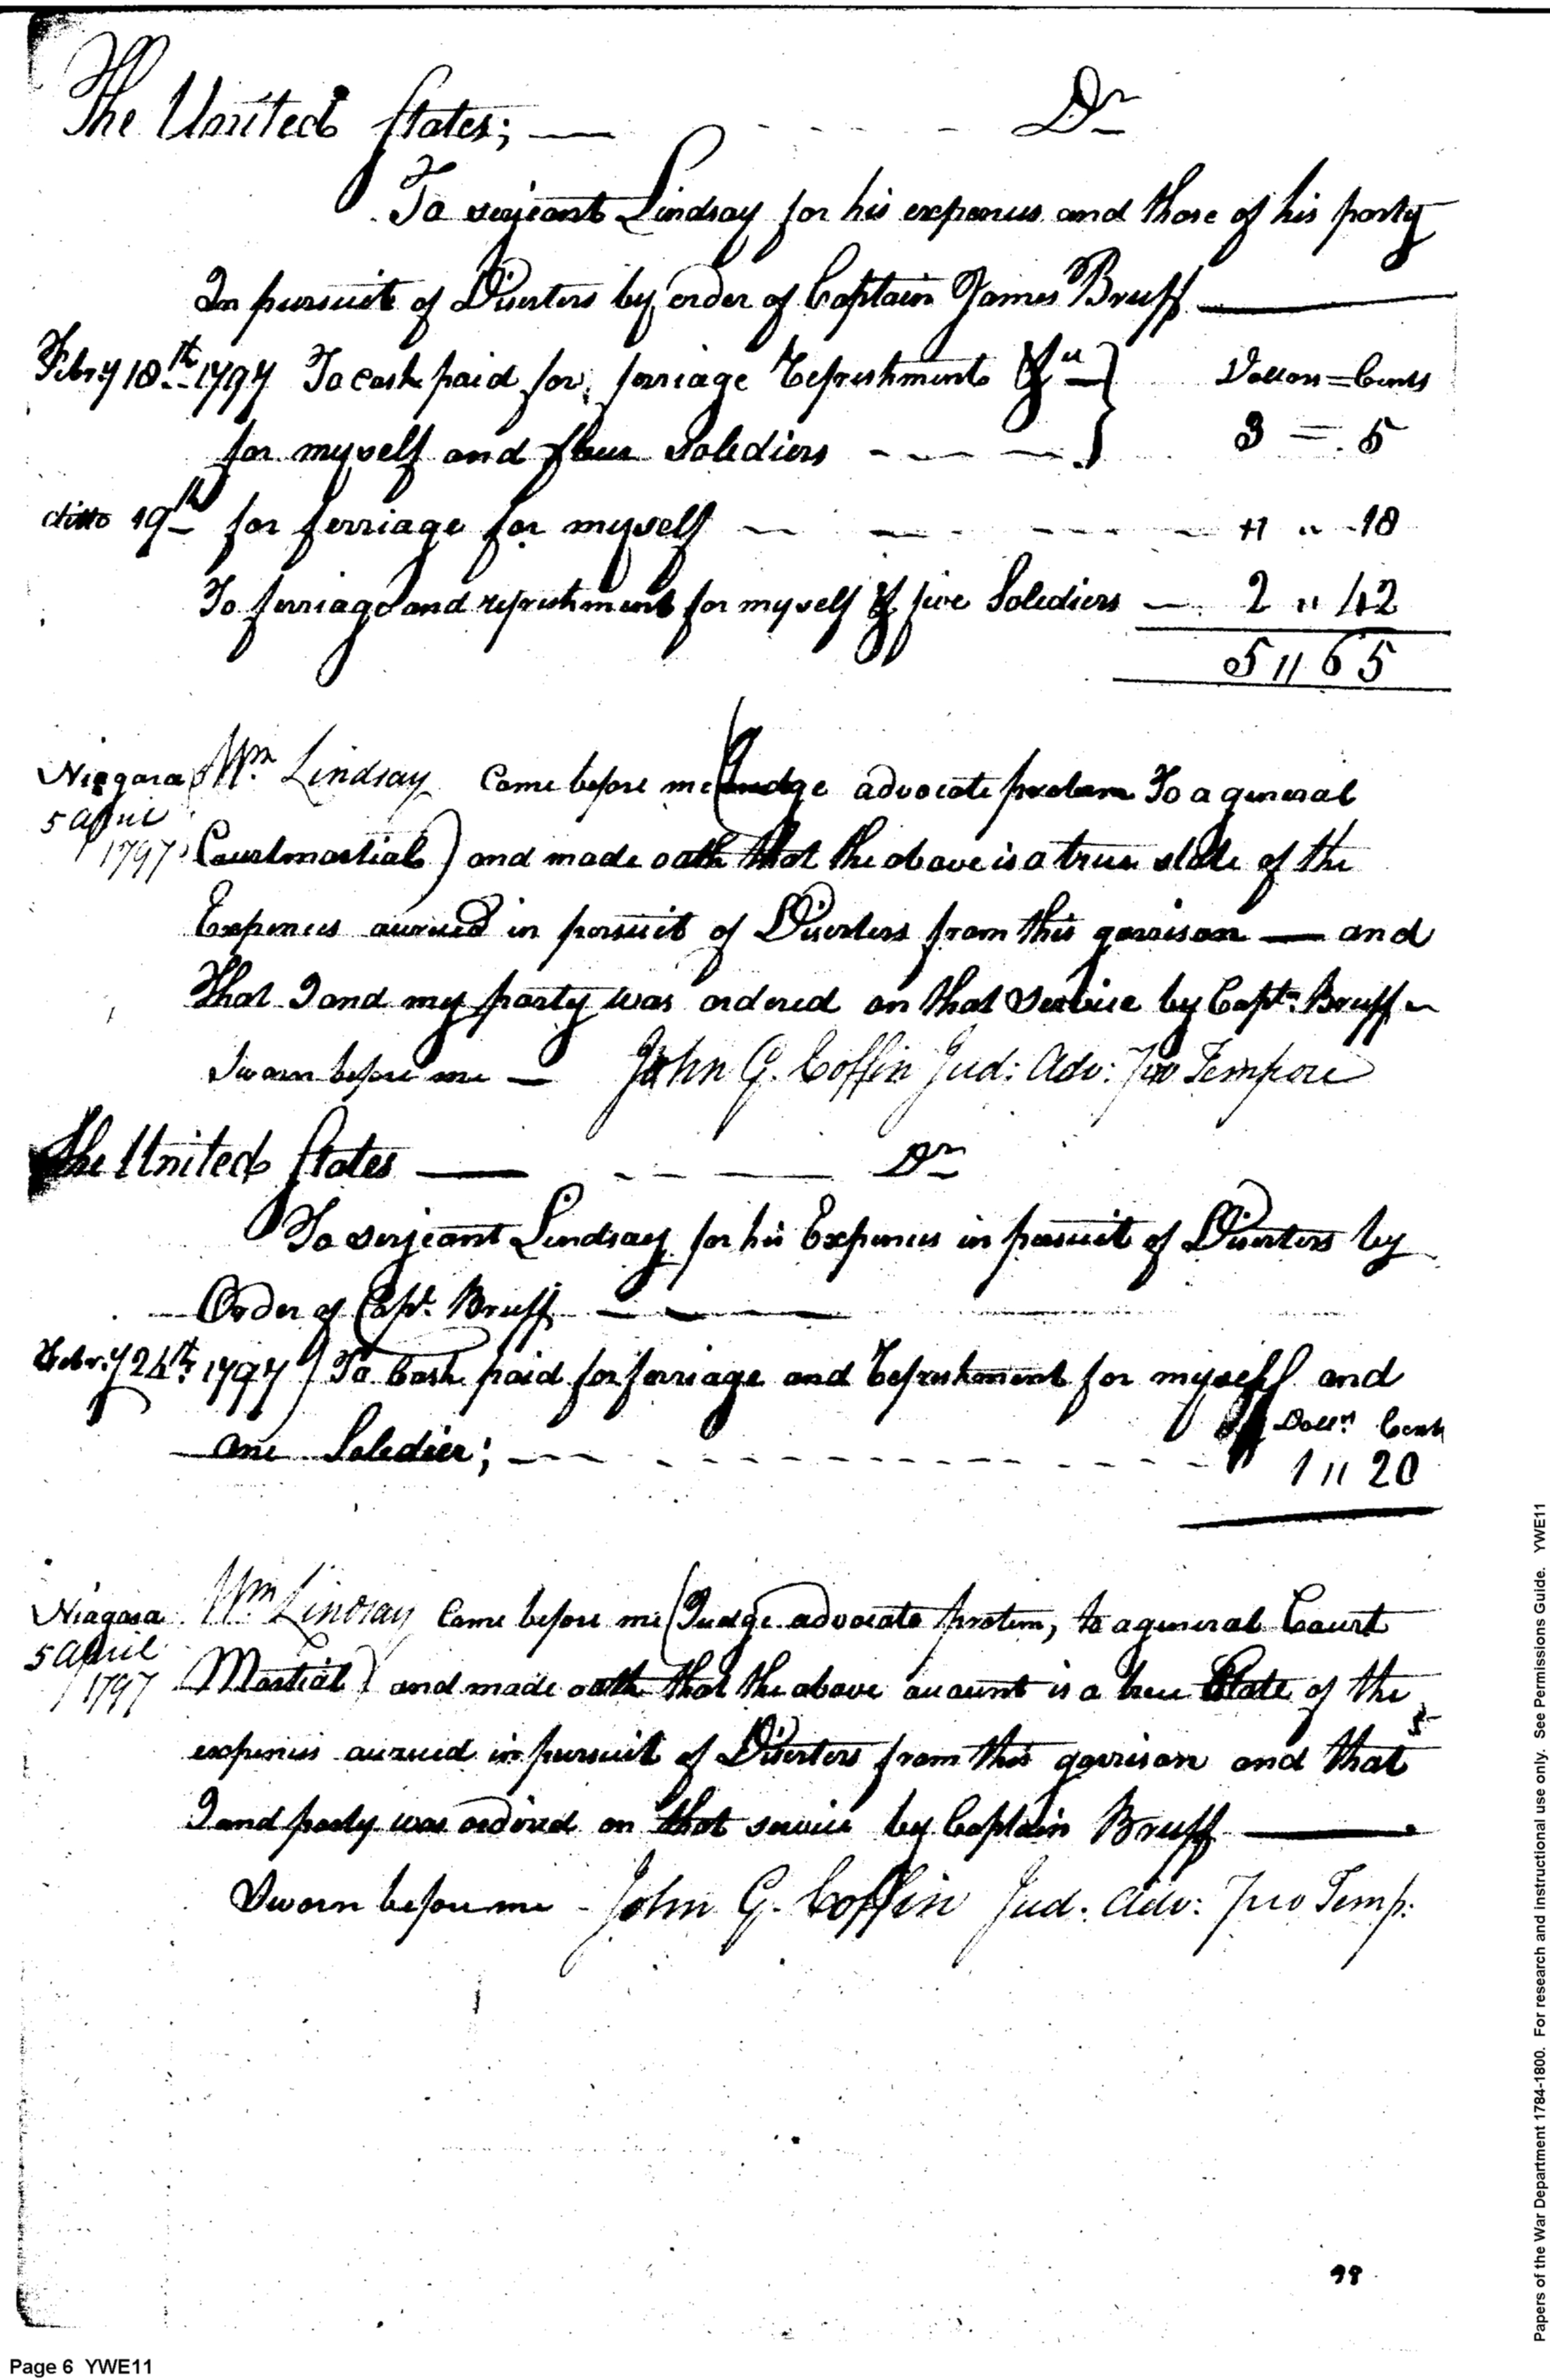 The United States; — Dr
To serjeant Lindsay for his expences and those of his party
In pursuit of Diserters by order of Captain James Bruff —
Febry 18th 1797 To Cash paid for ferriage Refreshment &c
Dollars = Cents
for myself and four Solediers - - - 3 = 5
ditto 19th for ferriage for myself - - - " 18
To ferriage and refreshment for myself & five Solediers — 2 " 42
5 " 65
Niagara
5 April
1797
Wm. Lindsay Came before me (Judge advocate protem To a general
Courtmartial) and made oath that the above is a true state of the
Expences accrued in persuit of Diserters from this garrison — and
That I and my party was ordered on that Service by Capt. Bruff
Sworn before me — John G. Coffin Jud: Adv: Pro Tempore
The United States — Dr
To serjeant Lindsay for his Expences in persuit of Diserters by
Order of Capt. Bruff —
Febry 24th 1797 To Cash paid for ferriage and Refreshment for myself and
Dolls. Cents
one Soledier; - - - 1 " 20
Niagara
5 April
1797
Wm Lindsay Came before me (Judge advocate protem, to a general Court
Martial) and made oath that the above account is a true State of the
expences accrued in pursuit of Diserters from this garrison and that
I and party was ordered on that service by Captain Bruff —
Sworn before me - John G. Coffin Jud. Adv: Pro Temp:
98
Page 6 YWE11
Papers of the War Department 1784-1800. For research and instructional use only. See Permissions Guide. YWE11